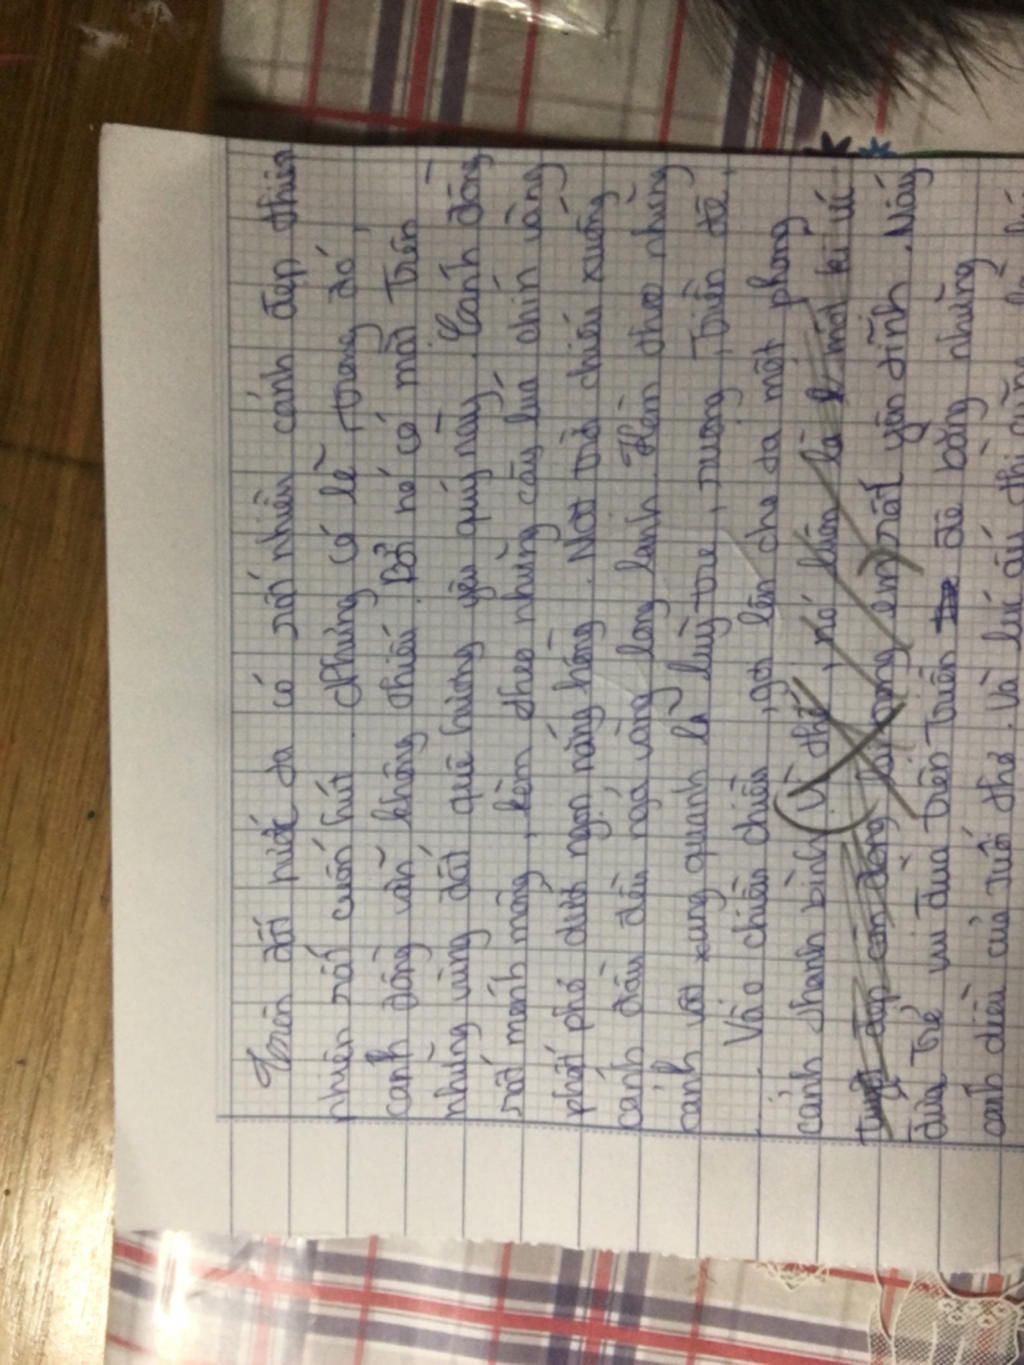 Trên đất nước ta có rất nhiều cảnh đẹp thiên
nhiên rất cuốn hút. Nhưng có lẽ trong đó,
cánh đồng vẫn không thiếu. Bởi nó có mặt trên
những vùng đất quê hương yêu quý này. Cánh đồng
rất mênh mông, kèm theo những cây lúa chín vàng
phất phơ dưới ngọn nắng hồng. Mặt trời chiếu xuống
cánh đều đều ngả vàng long lanh. Kèm theo những
cánh xung quanh là luỹ tre, mương, triền đê,
Vào chiều chiều, gợi lên cho ta một phong
cảnh thanh bình. (Vì thế, nó luôn là một kí ức
tuyệt đẹp còn đọng lại trong em) rất yên tĩnh. Mấy
đứa trẻ vui đùa trên triền đê bằng những
cánh diều của tuổi thơ. Và lúc ấy thì cũng là